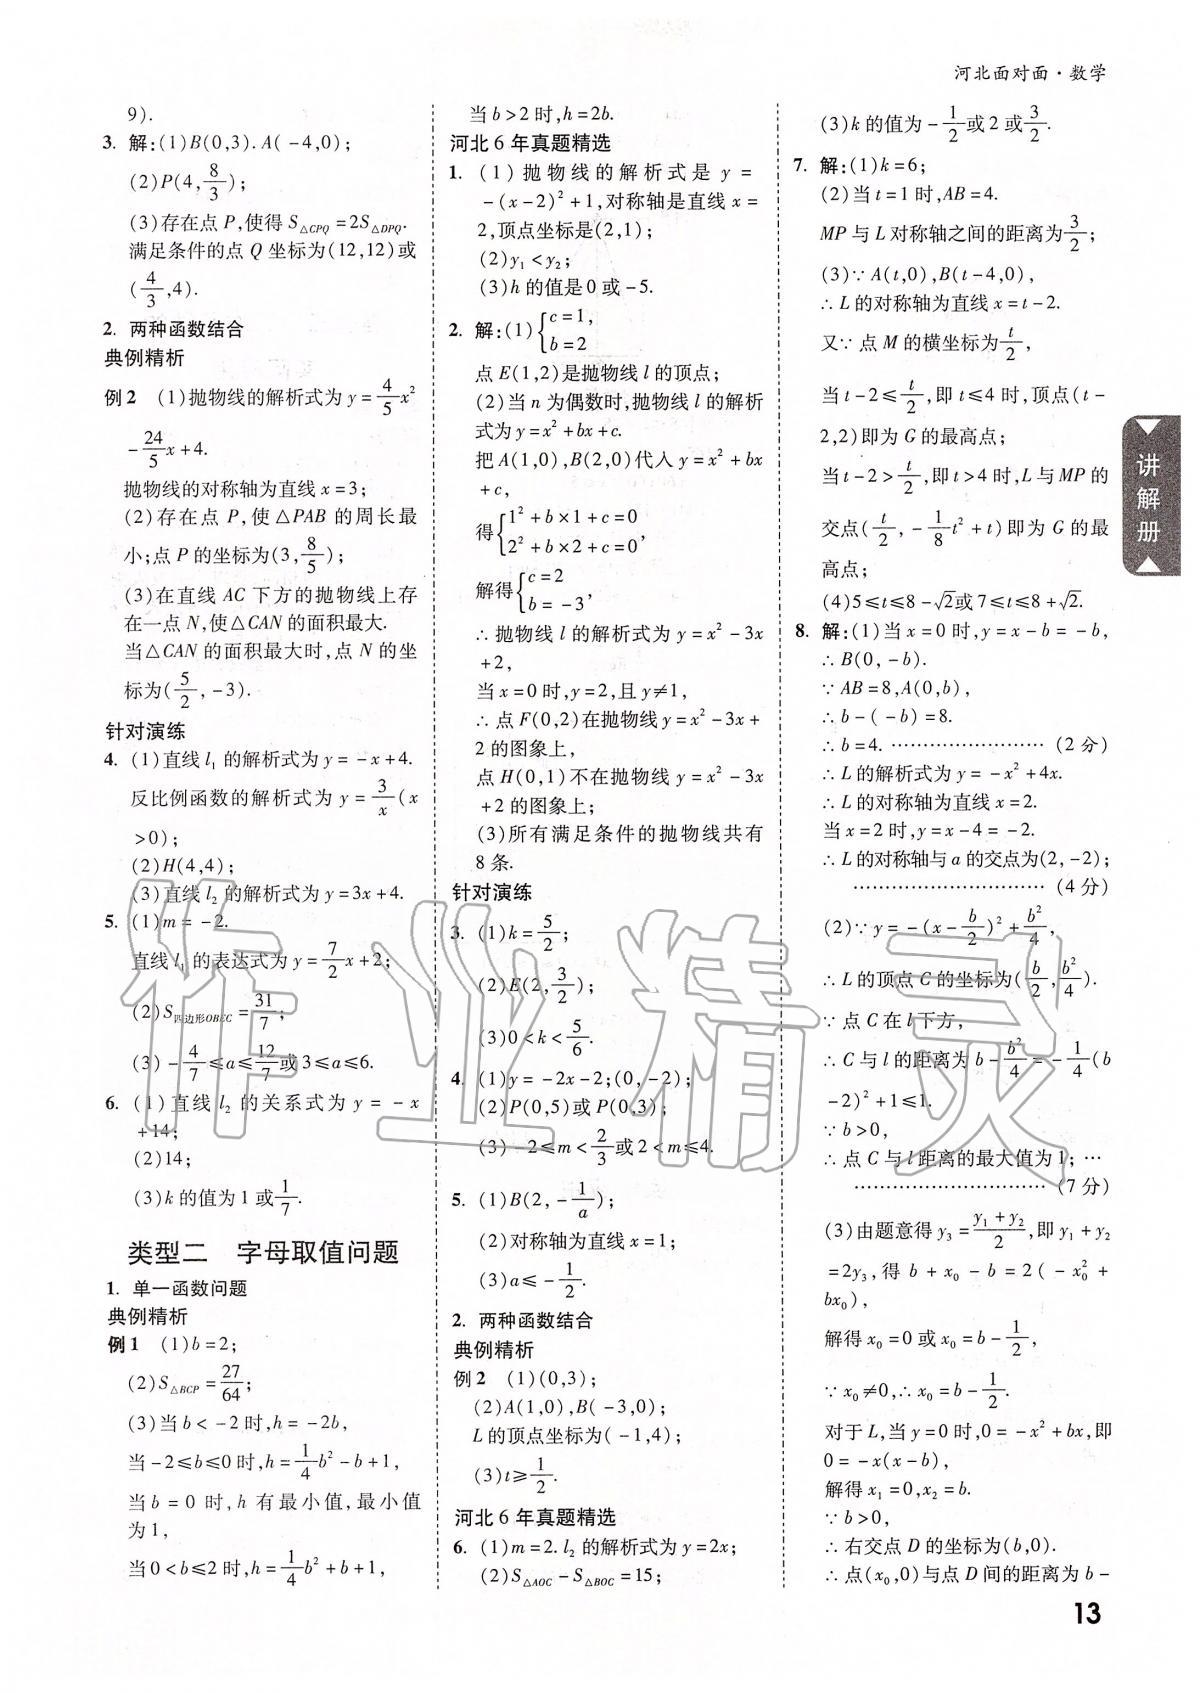 河北面对面·数学
9).
3. 解:(1)B(0,3).A(-4,0);
(2)P(4,8/3);
(3)存在点P,使得S△CPQ=2S△DPQ.
满足条件的点Q坐标为(12,12)或
(4/3,4).
2. 两种函数结合
典例精析
例2 (1)抛物线的解析式为y=4/5x²
-24/5x+4.
抛物线的对称轴为直线x=3;
(2)存在点P,使△PAB的周长最
小;点P的坐标为(3,8/5);
(3)在直线AC下方的抛物线上存
在一点N,使△CAN的面积最大.
当△CAN的面积最大时,点N的坐
标为(5/2,-3).
针对演练
4. (1)直线l₁的解析式为y=-x+4.
反比例函数的解析式为y=3/x(x
>0);
(2)H(4,4);
(3)直线l₂的解析式为y=3x+4.
5. (1)m=-2.
直线l₁的表达式为y=7/2x+2;
(2)S四边形OBEC=31/7;
(3)-4/7≤a≤12/7或3≤a≤6.
6. (1)直线l₂的关系式为y=-x
+14;
(2)14;
(3)k的值为1或1/7.
类型二 字母取值问题
1. 单一函数问题
典例精析
例1 (1)b=2;
(2)S△BCP=27/64;
(3)当b<-2时,h=-2b,
当-2≤b≤0时,h=1/4b²-b+1,
当b=0时,h有最小值,最小值
为1,
当0<b≤2时,h=1/4b²+b+1,
当b>2时,h=2b.
河北6年真题精选
1. (1)抛物线的解析式是y=
-(x-2)²+1,对称轴是直线x=
2,顶点坐标是(2,1);
(2)y₁<y₂;
(3)h的值是0或-5.
2. 解:(1){c=1,
b=2
点E(1,2)是抛物线l的顶点;
(2)当n为偶数时,抛物线l的解析
式为y=x²+bx+c.
把A(1,0),B(2,0)代入y=x²+bx
+c,
得{1²+b×1+c=0
2²+b×2+c=0,
解得{c=2
b=-3,
∴抛物线l的解析式为y=x²-3x
+2,
当x=0时,y=2,且y≠1,
∴点F(0,2)在抛物线y=x²-3x+
2的图象上,
点H(0,1)不在抛物线y=x²-3x
+2的图象上;
(3)所有满足条件的抛物线共有
8条.
针对演练
3. (1)k=5/2;
(2)E(2,3/2);
(3)0<k<5/6.
4. (1)y=-2x-2;(0,-2);
(2)P(0,5)或P(0,3);
(3)-2≤m<2/3或2<m≤4.
5. (1)B(2,-1/a);
(2)对称轴为直线x=1;
(3)a≤-1/2.
2. 两种函数结合
典例精析
例2 (1)(0,3);
(2)A(1,0),B(-3,0);
L的顶点坐标为(-1,4);
(3)t≥1/2.
河北6年真题精选
6. (1)m=2.l₂的解析式为y=2x;
(2)S△AOC-S△BOC=15;
(3)k的值为-1/2或2或3/2.
7. 解:(1)k=6;
(2)当t=1时,AB=4.
MP与L对称轴之间的距离为3/2;
(3)∵A(t,0),B(t-4,0),
∴L的对称轴为直线x=t-2.
又∵点M的横坐标为t/2,
当t-2≤t/2,即t≤4时,顶点(t-
2,2)即为G的最高点;
当t-2>t/2,即t>4时,L与MP的
交点(t/2,-1/8t²+t)即为G的最
高点;
(4)5≤t≤8-√2或7≤t≤8+√2.
8. 解:(1)当x=0时,y=x-b=-b,
∴B(0,-b).
∵AB=8,A(0,b),
∴b-(-b)=8.
∴b=4. ……………………(2分)
∴L的解析式为y=-x²+4x.
∴L的对称轴为直线x=2.
当x=2时,y=x-4=-2.
∴L的对称轴与a的交点为(2,-2);
……………………(4分)
(2)∵y=-(x-b/2)²+b²/4,
∴L的顶点C的坐标为(b/2,b²/4).
∵点C在l下方,
∴C与l的距离为b-b²/4=-1/4(b
-2)²+1≤1.
∵b>0,
∴点C与l距离的最大值为1;…
……………………(7分)
(3)由题意得y₃=(y₁+y₂)/2,即y₁+y₂
=2y₃,得b+x₀-b=2(-x₀²+
bx₀),
解得x₀=0或x₀=b-1/2,
∵x₀≠0,∴x₀=b-1/2.
对于L,当y=0时,0=-x²+bx,即
0=-x(x-b),
解得x₁=0,x₂=b.
∵b>0,
∴右交点D的坐标为(b,0).
∴点(x₀,0)与点D间的距离为b-
讲解册
13
作业精灵